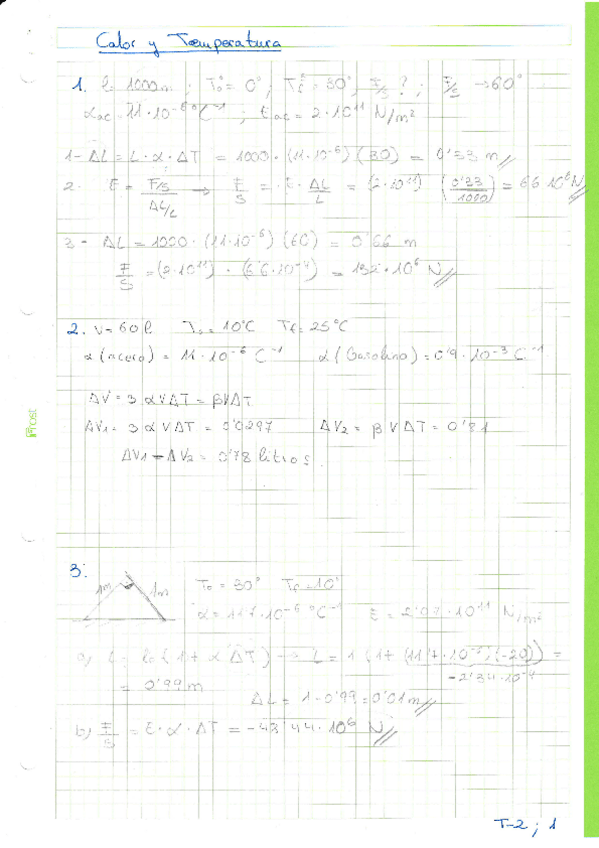 Calor y Temperatura
1. l= 1000m ; T₀= 0° ; Tf = 30° ; F/S ? ; F/S → 60°
αac = 11·10⁻⁶ °C⁻¹ ; Eac = 2·10¹¹ N/m²
1- ΔL = L·α·ΔT = 1000·(11·10⁻⁶)(30) = 0'33 m
2. E = F/S / ΔL/L → F/S = E·ΔL/L = (2·10¹¹) (0'33/1000) = 66·10⁶ N
3- ΔL = 1000·(11·10⁻⁶)(60) = 0'66 m
F/S = (2·10¹¹)·(6'6·10⁻⁴) = 132·10⁶ N
2. V= 60 l T₀= 10°C Tf= 25°C
α(acero) = 11·10⁻⁶ C⁻¹ α(Gasolina) = 0'9·10⁻³ C⁻¹
ΔV = 3αVΔT = βVΔT
ΔV₁ = 3αVΔT = 0'0297 ΔV₂ = βVΔT = 0'81
ΔV₁ - ΔV₂ = 0'78 litros
3.
1m 1m
T₀ = 30° Tf = 10°
α = 11'7·10⁻⁶ °C⁻¹ E = 2'07·10¹¹ N/m²
a) L = l₀(1+αΔT) → L = 1(1+(11'7·10⁻⁶)(-20)) =
-2'34·10⁻⁴
= 0'99 m
ΔL = 1-0'99 = 0'01 m
b) F/S = E·α·ΔT = -48'44·10⁶ N
T-2 ; 1